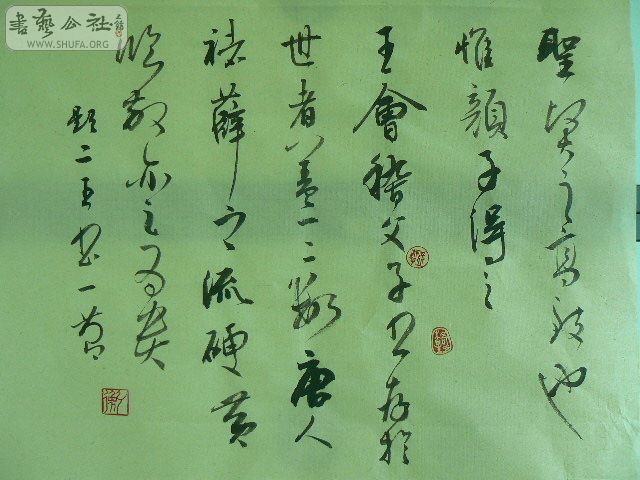 書藝公社
WWW.SHUFA.ORG
聖賢之高致也
惟顏子得之
王會稽父子書存於
世者蓋一二數唐人
褚薛之流硬黃
臨放亦足為貴
題二王書一節